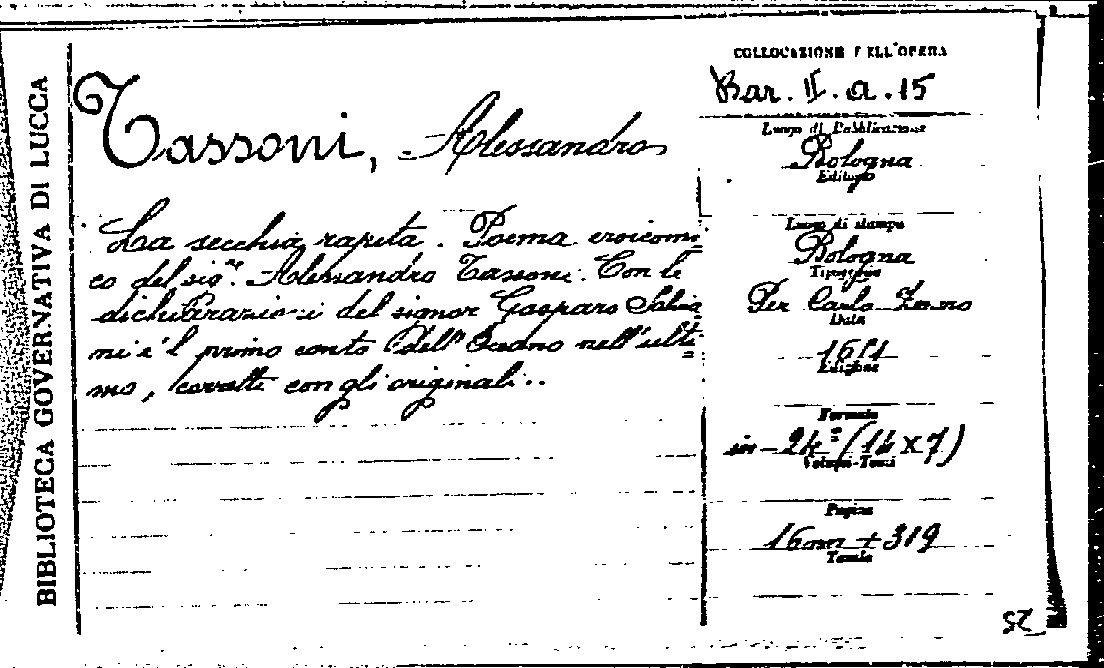 BIBLIOTECA GOVERNATIVA DI LUCCA
Tassoni, Alessandro
La secchia rapita. Poema eroicomi=
co del sig.r Alessandro Tassoni. Con le
dichiarazioni del signor Gasparo Salvia
ni e 'l primo canto dell' Oceano nell' ulti=
mo, corretti con gli originali..
COLLOCAZIONE DELL'OPERA
Bar. II. a. 15
Luogo di Pubblicazione
Bologna
Editore
Luogo di stampa
Bologna
Tipografia
Per Carlo
Data
Edizione
Formato
in-24° (14 x 7)
Volumi-Tomi
Pagine
16nn + 319
Tavole